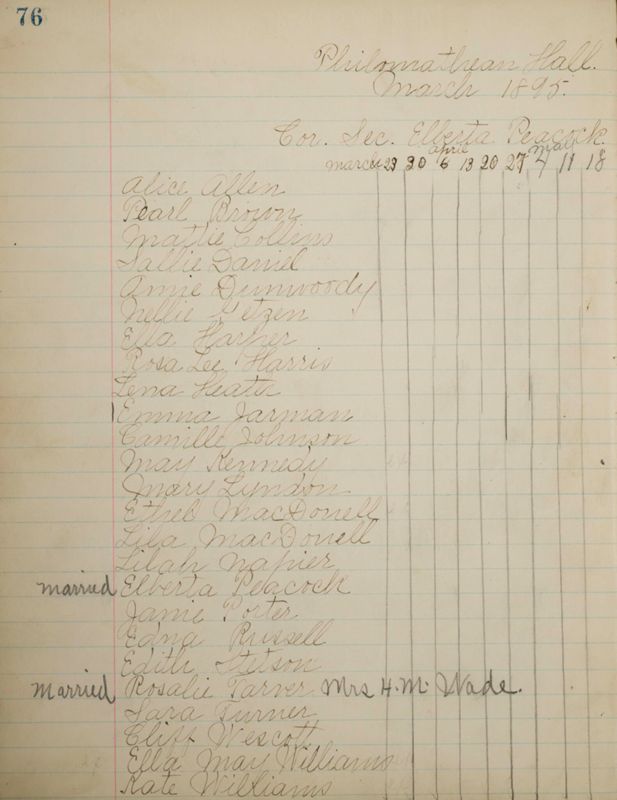 76
Philomathean Hall.
March 1895.
Cor. Sec. Elberta Peacock.
april may
march 23 30 6 13 20 27 4 11 18
Alice Allen
Pearl Brown
Mattie Collins
Sallie Daniel
Amie Dunwoody
Nellie Getzen
Ella Harber
Rosa Lee Harris
Lena Heath
Emma Jarman
Camille Johnson
May Kennedy
Mary Lyndon
Ethel MacDonell
Lila MacDonell
Lilah Napier
married Elberta Peacock
Janie Porter
Edna Russell
Edith Stetson
Married Rosalie Tarver Mrs H. M. Wade.
Sara Turner
Cliff Wescott
Ella May Williams
Kate Williams